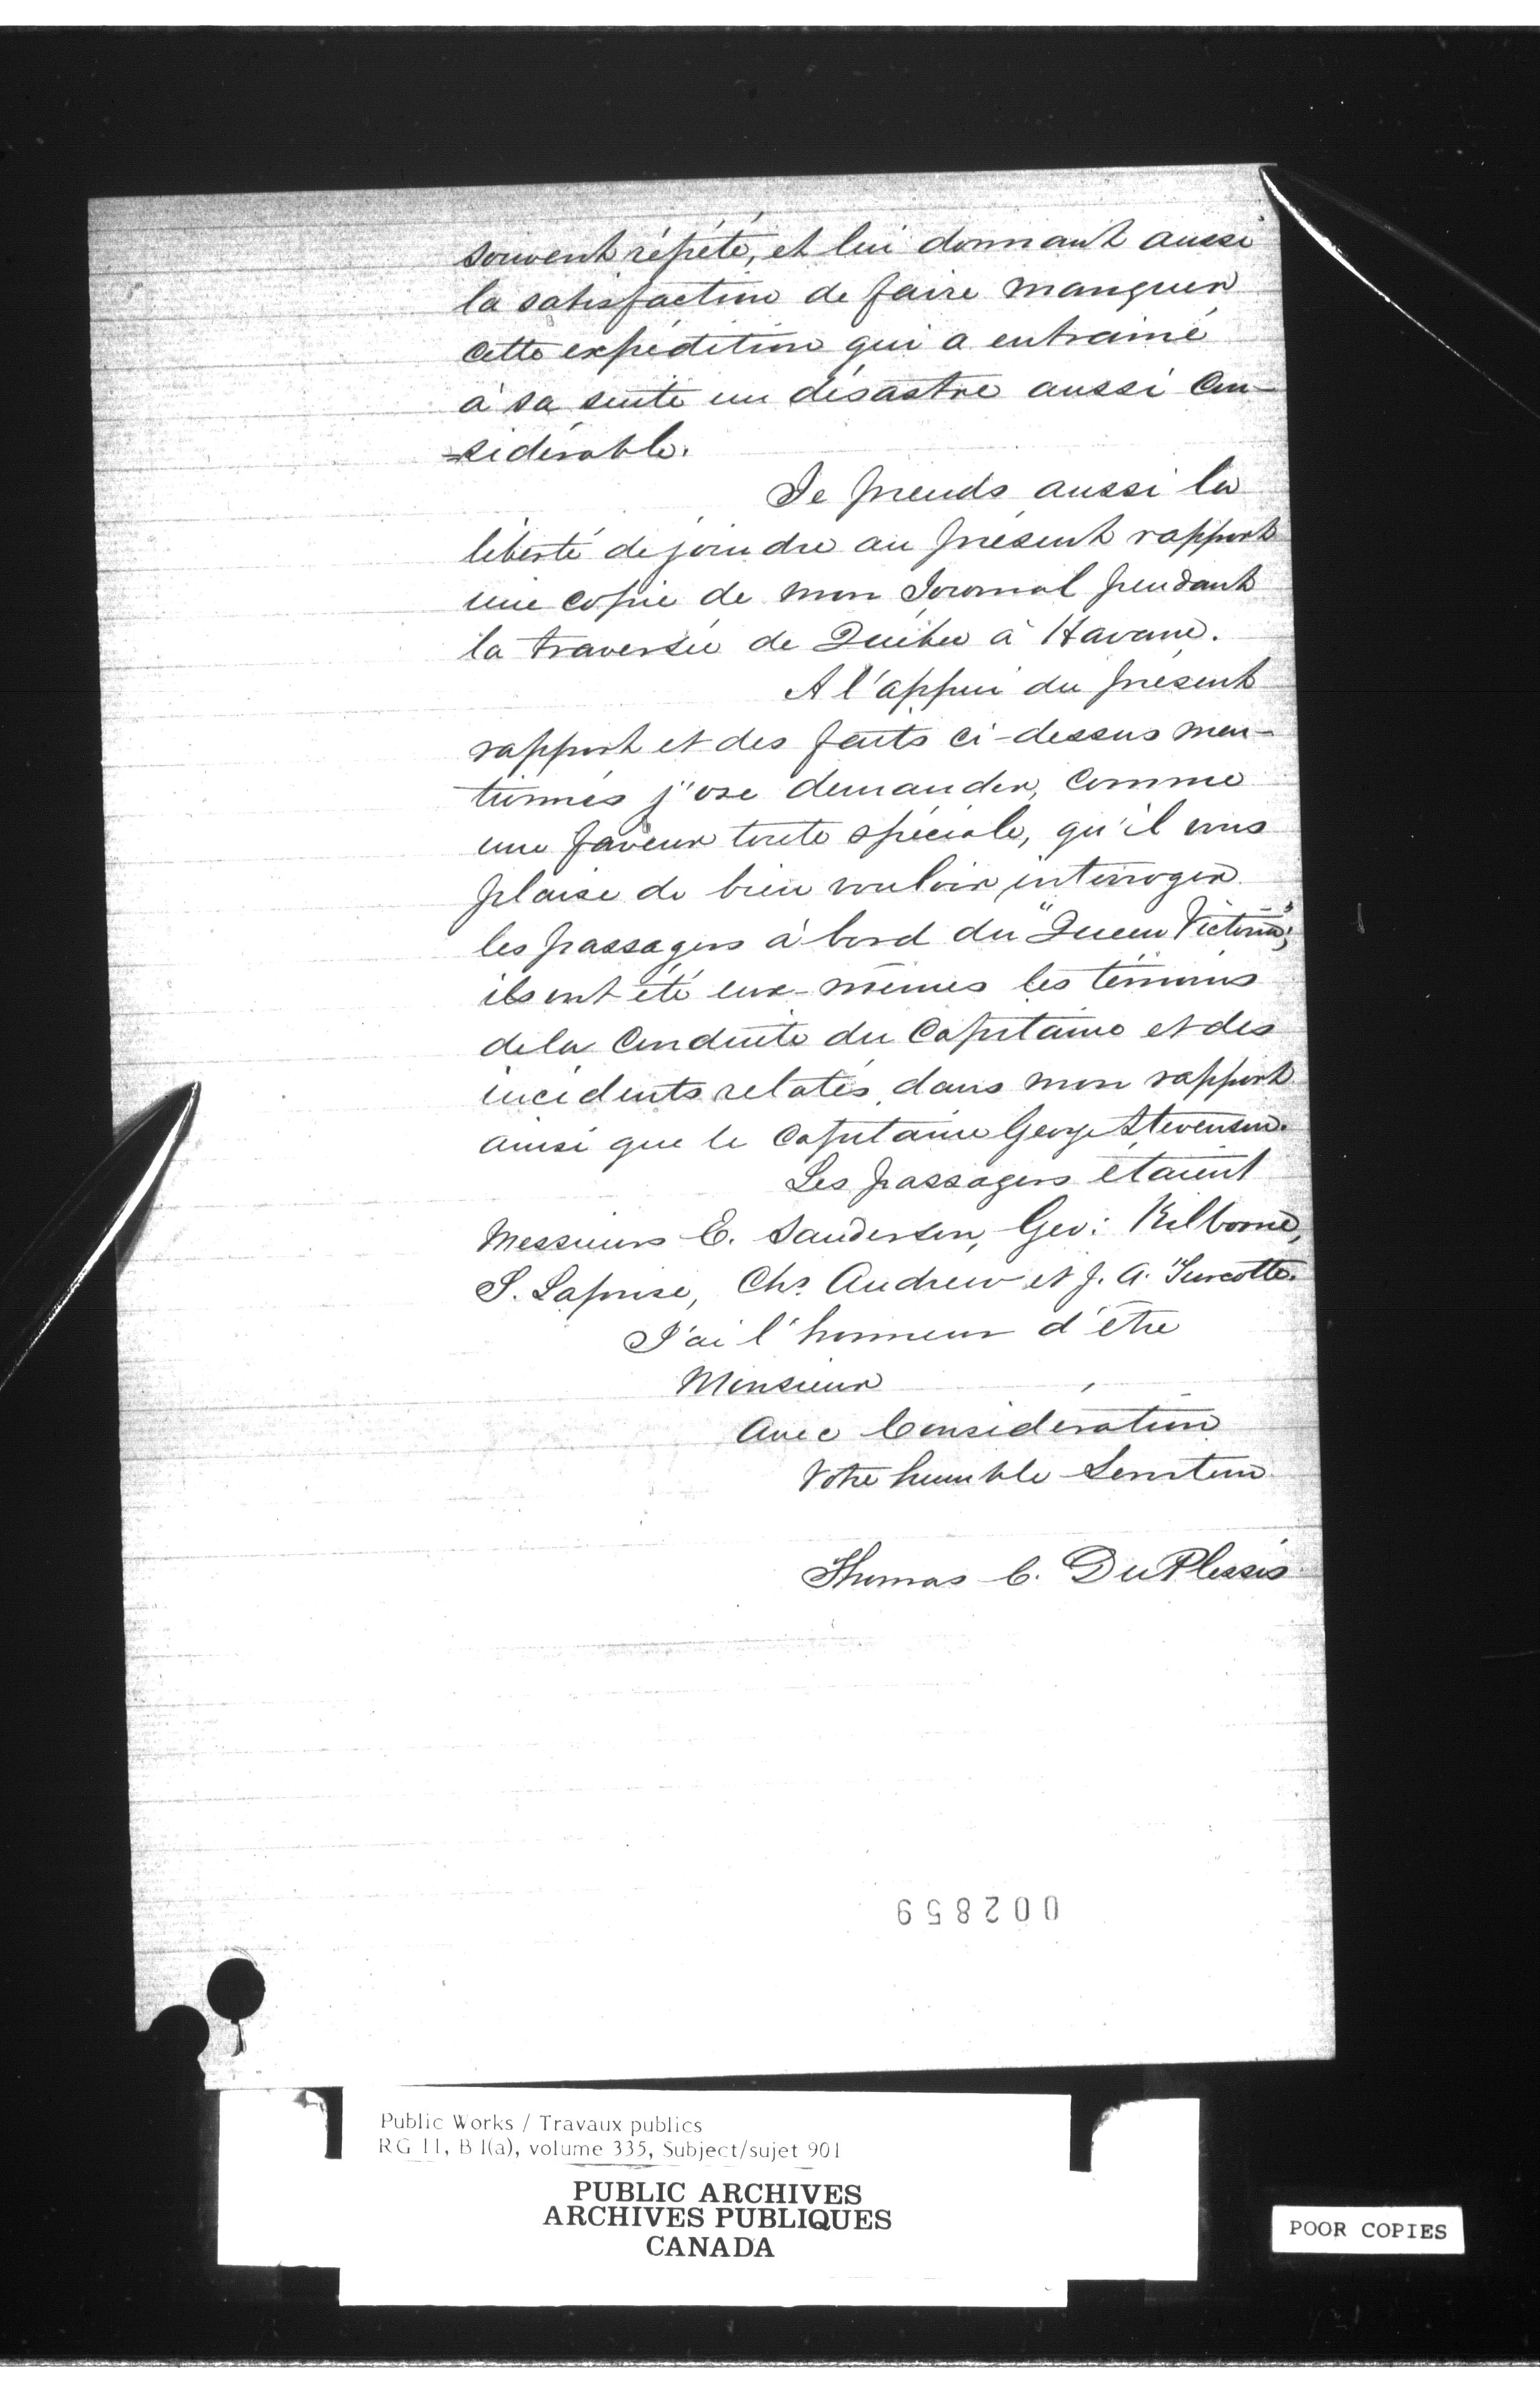 souvent répété, et lui donnant aussi
la satisfaction de faire manquer
cette expédition qui a entrainé
à sa suite un désastre aussi con-
-sidérable.
Je prends aussi la
liberté de joindre au présent rapport
une copie de mon Journal pendant
la traversée de Québec à Havane.
A l'appui du présent
rapport et des faits ci-dessus men-
tionnés j'ose demander, comme
une faveur toute spéciale, qu'il vous
plaise de bien vouloir interroger
les passagers à bord du "Queen Victoria";
ils ont été eux-mêmes les témoins
de la conduite du Capitaine et des
incidents relatés dans mon rapport
ainsi que le Capitaine George Stevenson.
Les passagers étaient
Messieurs E. Sanderson, Geo: Kilborne,
S. Laprise, Chs Andrew et J. A. Turcotte.
J'ai l'honneur d'être
Monsieur
Avec Considération
Votre humble Serviteur
Thomas C. DuPlessis
002859
Public Works / Travaux publics
RG 11, B 1(a), volume 335, Subject/sujet 901
PUBLIC ARCHIVES
ARCHIVES PUBLIQUES
CANADA
POOR COPIES